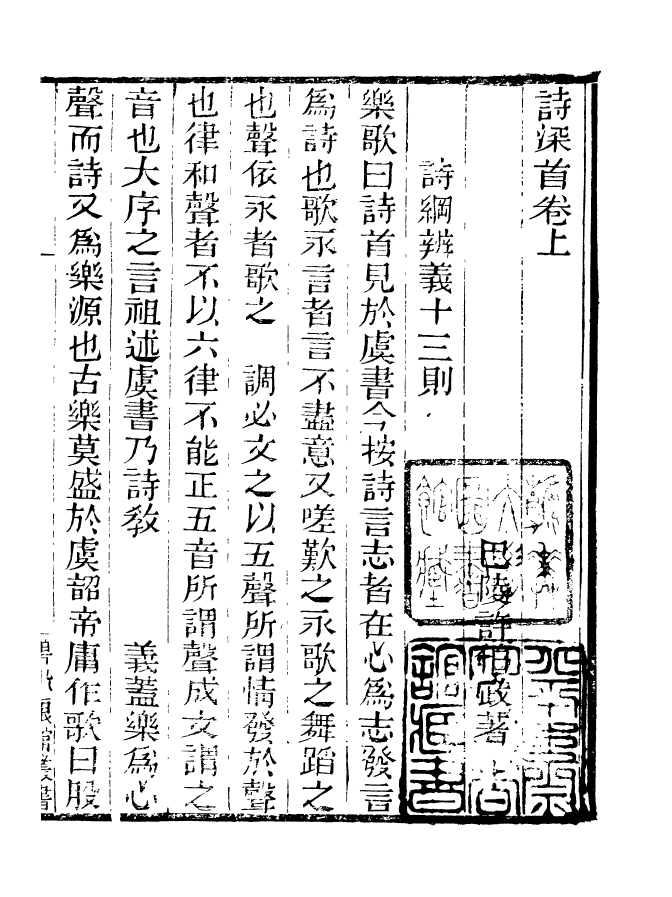 詩深首卷上
巴陵許伯政著
詩綱辨義十三則
樂歌曰詩首見於虞書今按詩言志者在心爲志發言
爲詩也歌永言者言不盡意又嗟歎之永歌之舞蹈之
也聲依永者歌之 調必文之以五聲所謂情發於聲
也律和聲者不以六律不能正五音所謂聲成文謂之
音也大序之言祖述虞書乃詩敎 義蓋樂爲心
聲而詩又爲樂源也古樂莫盛於虞韶帝庸作歌曰股
一
叢書